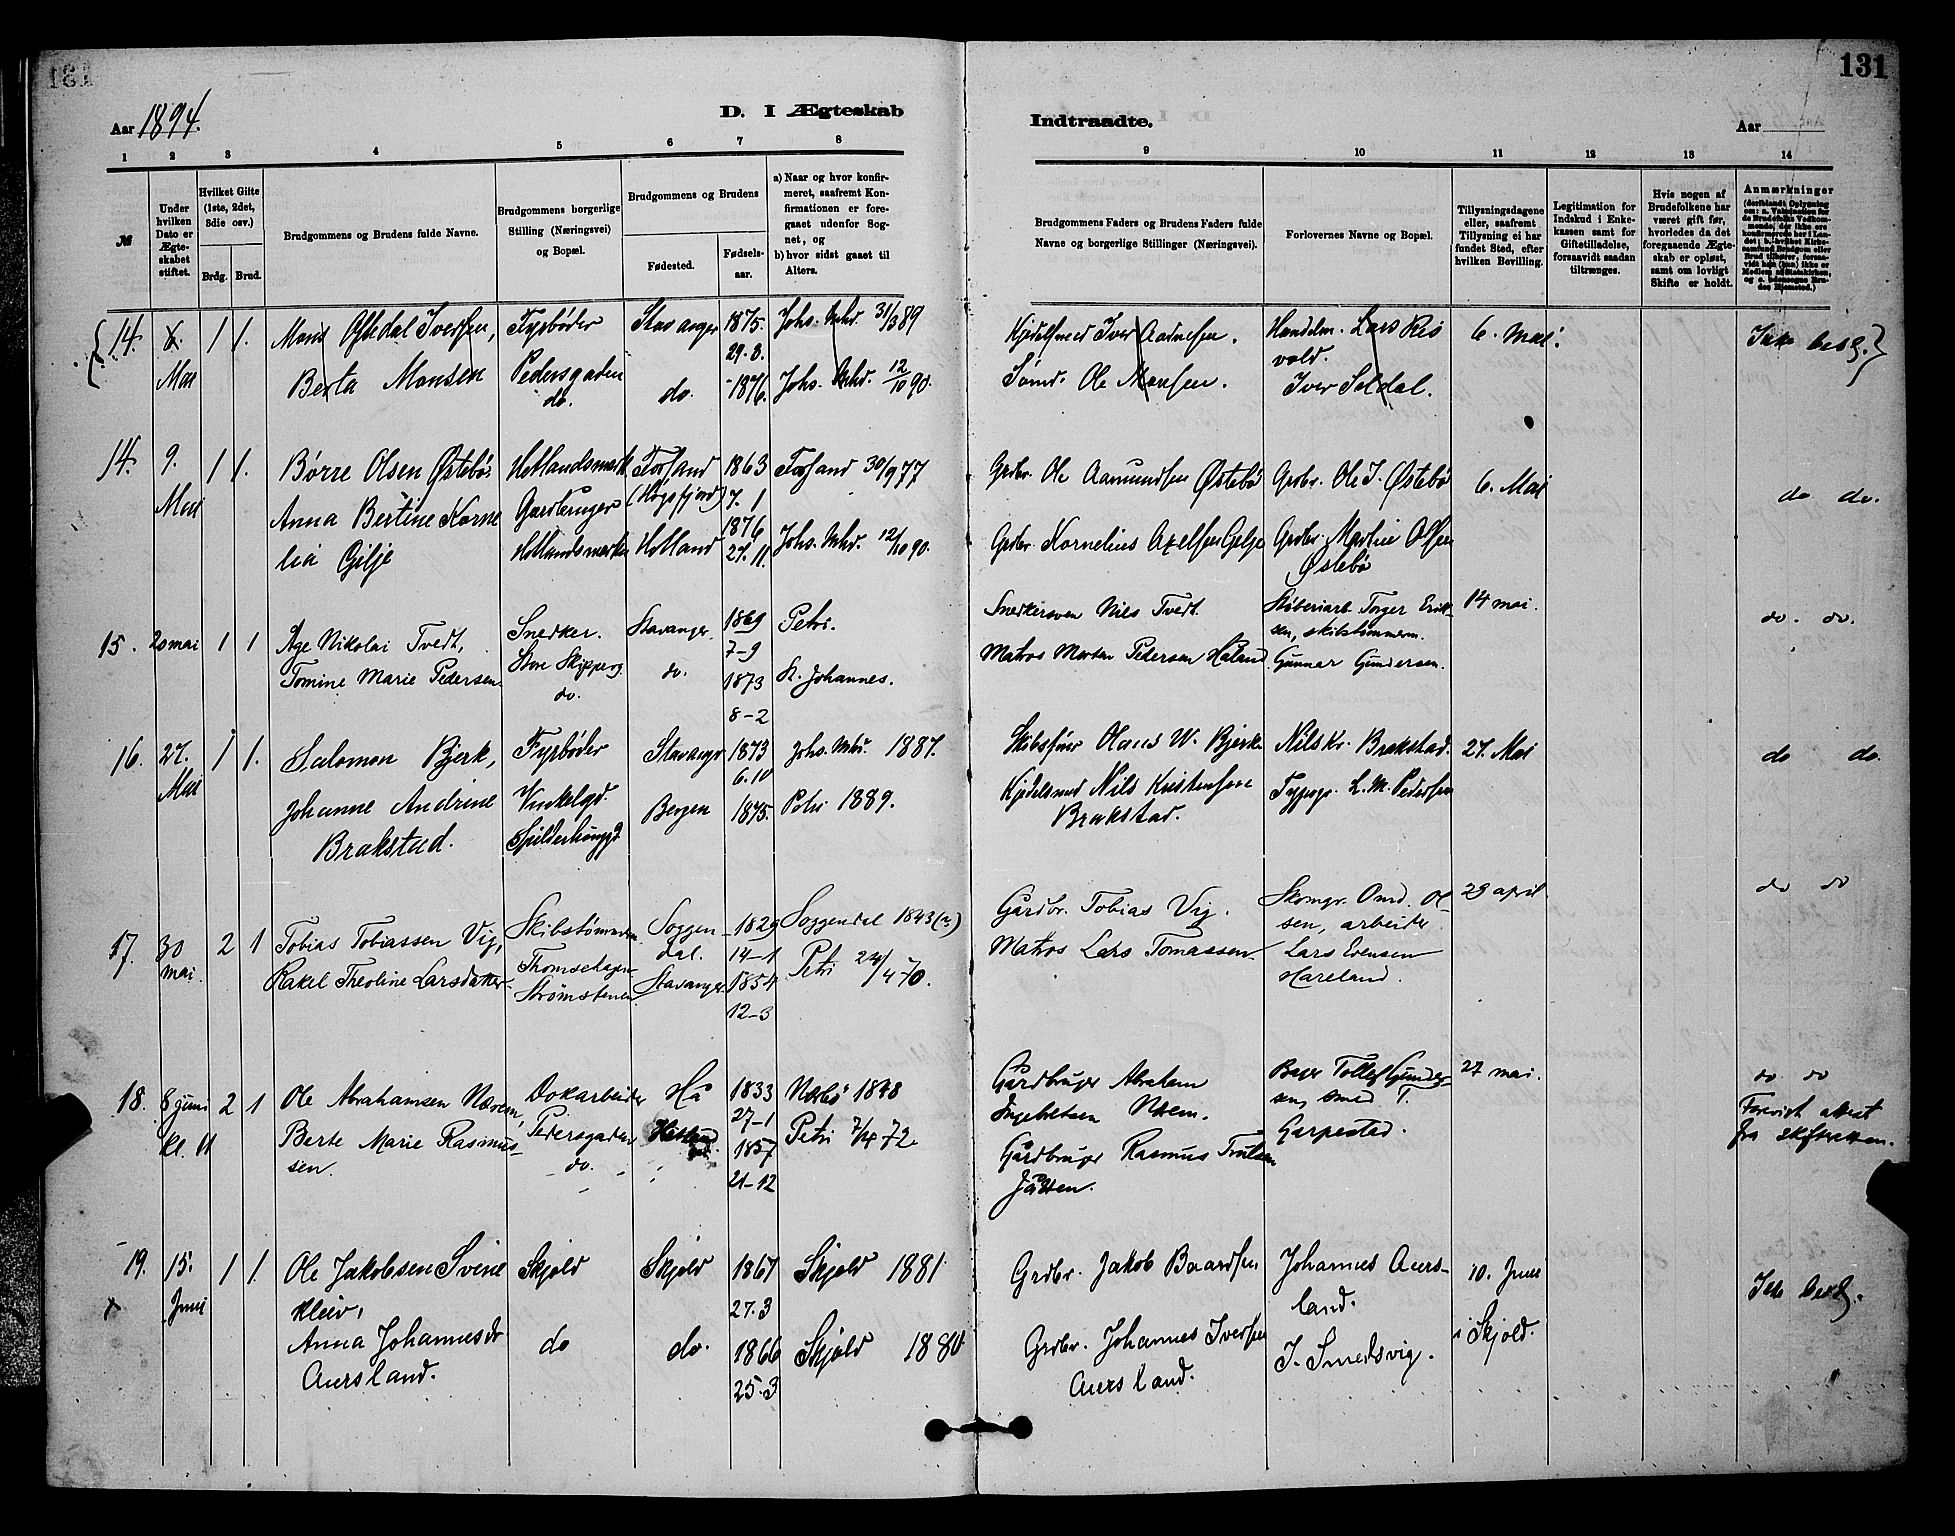 131
Aar 1894.
D. I Ægteskab
1 2 3 4 5 6 7 8
№
Under hvilken Dato er Ægteskabet stiftet.
Hvilket Gifte (1ste, 2det, 3die osv.)
Brdg. Brud.
Brudgommens og Brudens fulde Navne.
Brudgommens borgerlige Stilling (Næringsvei) og Bopæl.
Brudgommens og Brudens
Fødested. Fødselsaar.
a) Naar og hvor konfirmeret, saafremt Konfirmationen er foregaaet udenfor Sognet, og
b) hvor sidst gaaet til Alters.
14. 6. Mai 1 1.
Mons Oftedal Iversen,
Berta Monsen
Fyrbøder
Pedersgaden
do.
Stavanger
do.
1875.
29.8.
1876.
Johs. Mhd. 31/3 89
Johs. Mhd. 12/10 90.
14. 9. Mai 1 1.
Børre Olsen Østebø
Anna Bertine Korne
lia Gilje
Hetlandsmark
Gardbruger
Hetlandsmarken
Forsand
(Høgsfjord)
Hetland
1863
7. 1
1876
27. 11.
Forsand 30/9 77
Johs. Mhd. 12/10 90.
15. 20 mai 1 1
Åge Nikolai Tvedt,
Tomine Marie Pedersen
Snedker.
Store Skipperg.
do.
Stavanger.
do.
1869
7-9
1873
8-2
Petri.
St. Johannes.
16. 27. Mai 1 1.
Salomon Bjerk,
Johanne Andrine
Brakstad.
Fyrbøder
Vinkelgd.
Spilderhauggd.
Stavanger
Bergen
1873
6.10
1875.
Johs. Mhd. 1887.
Petri 1889.
17. 30 mai. 2 1
Tobias Tobiassen Vig,
Rakel Theoline Larsdatter
Skibstømmerm.
Strømstenen
Soggen
dal.
Stavanger
1829
14-1
1854
12-3
Soggendal 1843(?)
Petri 24/4 70.
18. 8 juni kl. 11 2 1
Ole Abrahamsen Nærem,
Berte Marie Rasmus
sen.
Dokarbeider
Pedersgaden
do.
Hå
Hetland
1833
27-1
1857
21-12
Nærbø 1848
Petri 7/4 72.
19. 15. Juni 1 1.
Ole Jakobsen Svine
kleiv,
Anna Johannesdr
Auersland.
Skjold
do
Skjold
do.
1867
27.3
1866
25.3
Skjold 1881
Skjold 1880
131
Indtraadte.
Aar
9 10 11 12 13 14
Brudgommens Faders og Brudens Faders fulde Navne og borgerlige Stillinger (Næringsvei).
Forlovernes Navne og Bopæl.
Tillysningsdagene eller, saafremt Tillysning ei har fundet Sted, efter hvilken Bevilling.
Legitimation for Indskud i Enkekassen samt for Giftetilladelse, forsaavidt saadan tiltrænges.
Hvis nogen af Brudefolkene har været gift før, hvorledes da det foregaaende Ægteskab er opløst, samt om lovligt Skifte er holdt.
Anmærkninger
Kjedelsmed Iver Aadnesen.
Sømd. Ole Monsen.
Handelm. Lars Ris
vold.
Iver Seldal.
6. Mai.
Ikke besg.
Grdbr. Ole Aamundsen Østebø
Grdbr. Kornelius Axelsen Gilje
Grdbr. Ole J. Østebø
Grdbr. Martin Olsen
Østebø
6. Mai
do do.
Snedkersven Nils Tvedt.
Matros Morten Pedersen Haland
Støberiarb. Torger Erik-
sen, skibstømmerm.
Gunnar Gundersen.
14 mai.
do. do.
Skibsfører Olaus W. Bjerk
Kjedelsmed Nils Kristensen
Brakstad.
Nils Kr. Brakstad.
Typogr. L. M. Pedersen
27. Mai
do do.
Gårdbr. Tobias Vig.
Matros Lars Tomassen.
Skomgr. Omd. Ol-
sen, arbeider
Lars Evensen
Hareland.
29 april.
do do
Gårdbruger Abraham
Ingebretsen Nærem.
Gårdbruger Rasmus Trulsen
Jåtten.
Bager Tollef Gunder-
sen, smed T.
Garpestad.
27 mai.
do do
Forevist attest
fra skifteretten.
Grdbr. Jakob Baardsen
Grdbr. Johannes Iversen
Auersland.
Johannes Auers-
land.
J. Smedsvig.
10. Juni
i Skjold.
Ikke besg.